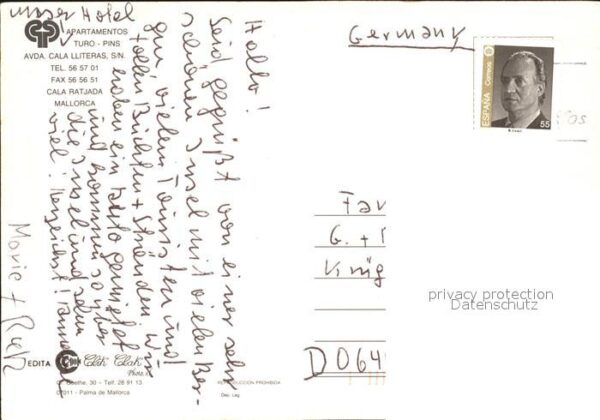 unser Hotel
APARTAMENTOS
TURO - PINS
AVDA. CALA LLITERAS, S/N.
TEL. 56 57 01
FAX 56 56 51
CALA RATJADA
MALLORCA
Hallo!
Seid gegrüßt von einer sehr
schönen Insel mit vielen Ber-
gen, vielen Touristen und
tollen Buchten + Stränden. Wir
haben ein Auto gemietet
und kommen so über
die Insel und sehn
viel!
Marie +
Germany
ESPAÑA
Correos
55
Fa
G. +
König
D 064
privacy protection
Datenschutz
EDITA
Click Clack
Photo
C. Goethe, 30 - Telf. 28 91 13
07011 - Palma de Mallorca
REPRODUCCION PROHIBIDA
Dep. Leg.